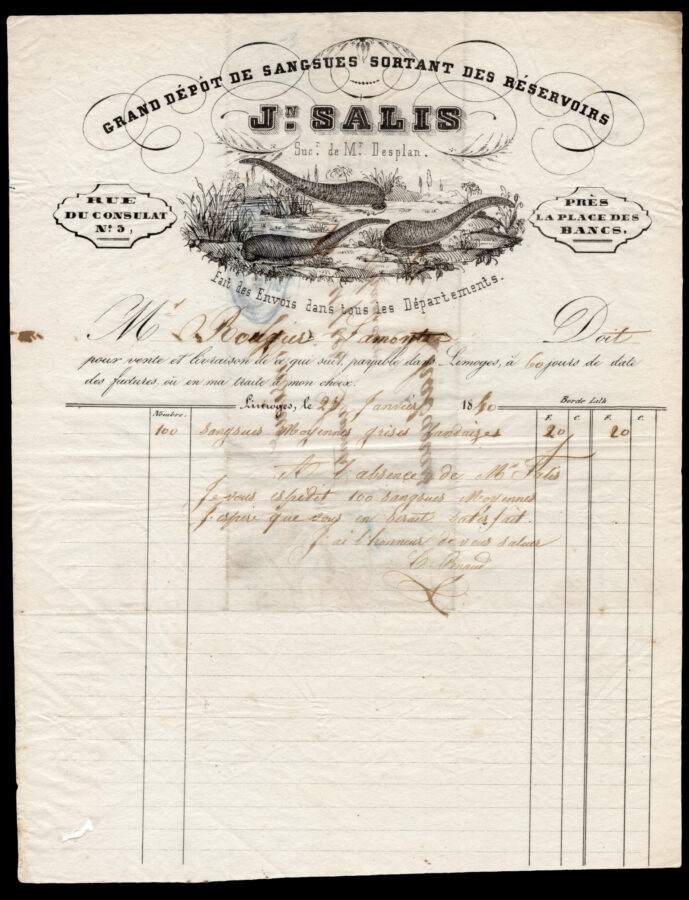 GRAND DÉPÔT DE SANGSUES SORTANT DES RÉSERVOIRS
Jn. SALIS
Sucr. de Mr. Desplan.
RUE
DU CONSULAT
No. 5,
PRÈS
LA PLACE DES
BANCS.
Fait des Envois dans tous les Départements.
Mr Rougier Doit
pour vente et livraison de ce qui suit, payable dans Limoges, à 60 jours de date
des factures, ou en ma traite à mon choix.
Limoges, le Janvier 18
Borde Lith
Nombre. F. C. F. C.
100 Sangsues Moyennes grises 20 20
A l'absence de Mr Salis
Je vous espedit 100 sangsues Moyennes
J'espire que vous en serait satisfait.
J'ai l'honneur de vous saluer